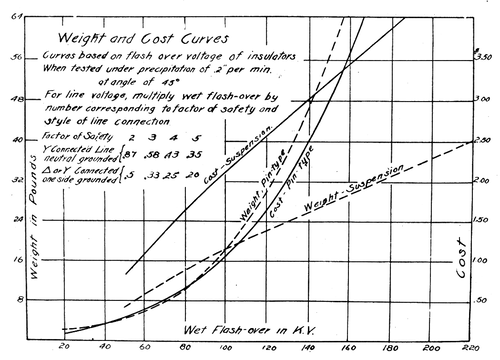 64
56
48
40
32
24
16
8
Weight in Pounds
Weight and Cost Curves
Curves based on flash over voltage of insulators
When tested under precipitation of .2" per min.
at angle of 45°
For line voltage, multiply wet flash-over by
number corresponding to factor of safety and
style of line connection
Factor of Safety 2 3 4 5
Y Connected Line
neutral grounded { .87 .58 .43 .35
Δ or Y Connected
one side grounded { .5 .33 .25 .20
Cost-Suspension
Weight-pin-type
Cost-Pin Type
Weight-Suspension
$
3.50
3.00
2.50
2.00
1.50
1.00
.50
Cost
Wet Flash-over in K.V.
20 40 60 80 100 120 140 160 180 200 220